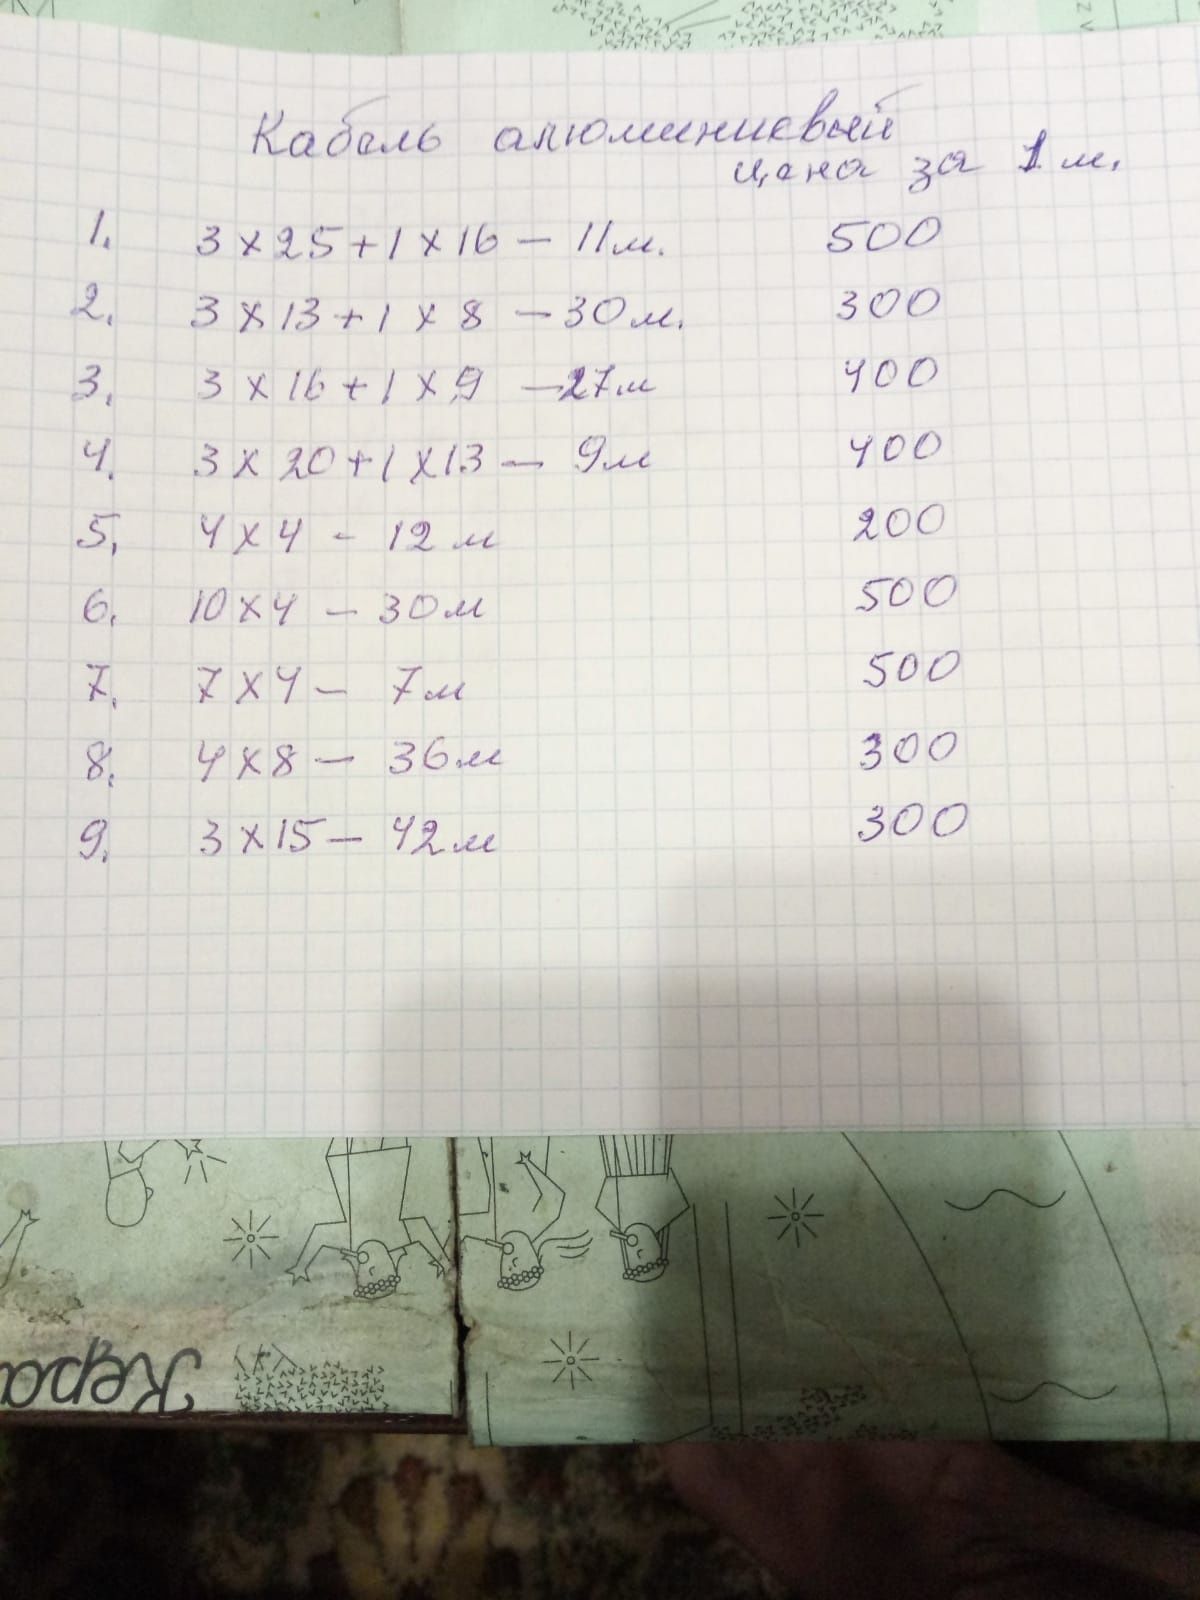 Кабель алюминиевый
цена за 1 м.
1. 3 x 25 + 1 x 16 — 11 м. 500
2. 3 x 13 + 1 x 8 — 30 м. 300
3. 3 x 16 + 1 x 9 — 27 м 400
4. 3 x 20 + 1 x 13 — 9 м 400
5. 4 x 4 - 12 м 200
6. 10 x 4 — 30 м 500
7. 7 x 4 — 7 м 500
8. 4 x 8 — 36 м 300
9. 3 x 15 — 42 м 300
Кера